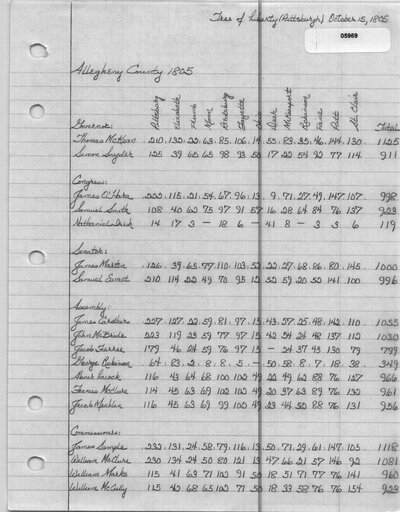 Tree of Liberty (Pittsburgh) October 15, 1805
05969
Allegheny County 1805
Pittsburg Elizabeth Plumb Moon Fayette Ohio Deer McKeesport Robinson Pitt St. Clair Total
Governor:
Thomas McKean 210 132 22 63 85 106 14 55 83 35 46 144 130 1125
Simon Snyder 125 39 65 65 98 93 50 17 22 54 92 77 114 911
Congress:
James O'Hara 222 115 21 54 67 96 13 9 71 27 49 147 107 998
Samuel Smith 108 40 62 75 97 91 57 16 28 64 84 76 137 923
Nathanial Irish 14 17 3 - 18 6 - 41 8 - 3 3 6 119
Senator:
James Martin 126 39 65 77 110 103 52 22 27 68 86 80 145 1000
Samuel Ewart 210 114 22 49 70 95 12 50 59 20 50 141 100 996
Assembly:
James Carothers 227 127 22 59 81 97 15 43 57 25 48 142 110 1055
John McBride 223 119 23 59 77 97 15 42 54 24 48 137 112 1030
Jacob Ferree 179 46 24 59 76 97 15 - 24 37 43 130 79 799
George Robinson 64 83 2 8 8 5 - 50 58 8 7 18 38 349
Abner Lacock 116 43 64 68 100 102 49 22 49 62 88 76 127 966
Francis McClure 114 45 63 69 102 102 49 20 37 63 89 76 132 961
Jacob Mechlin 116 45 63 69 99 100 49 23 44 50 88 76 131 956
Commissioner:
James Semple 232 131 24 58 79 116 13 50 71 29 61 147 105 1118
William McClure 230 134 24 50 80 121 13 47 66 21 57 146 92 1081
William Marks 115 41 63 71 102 91 50 18 51 71 77 76 141 960
William McCully 115 42 68 65 102 71 50 18 33 58 76 76 154 923